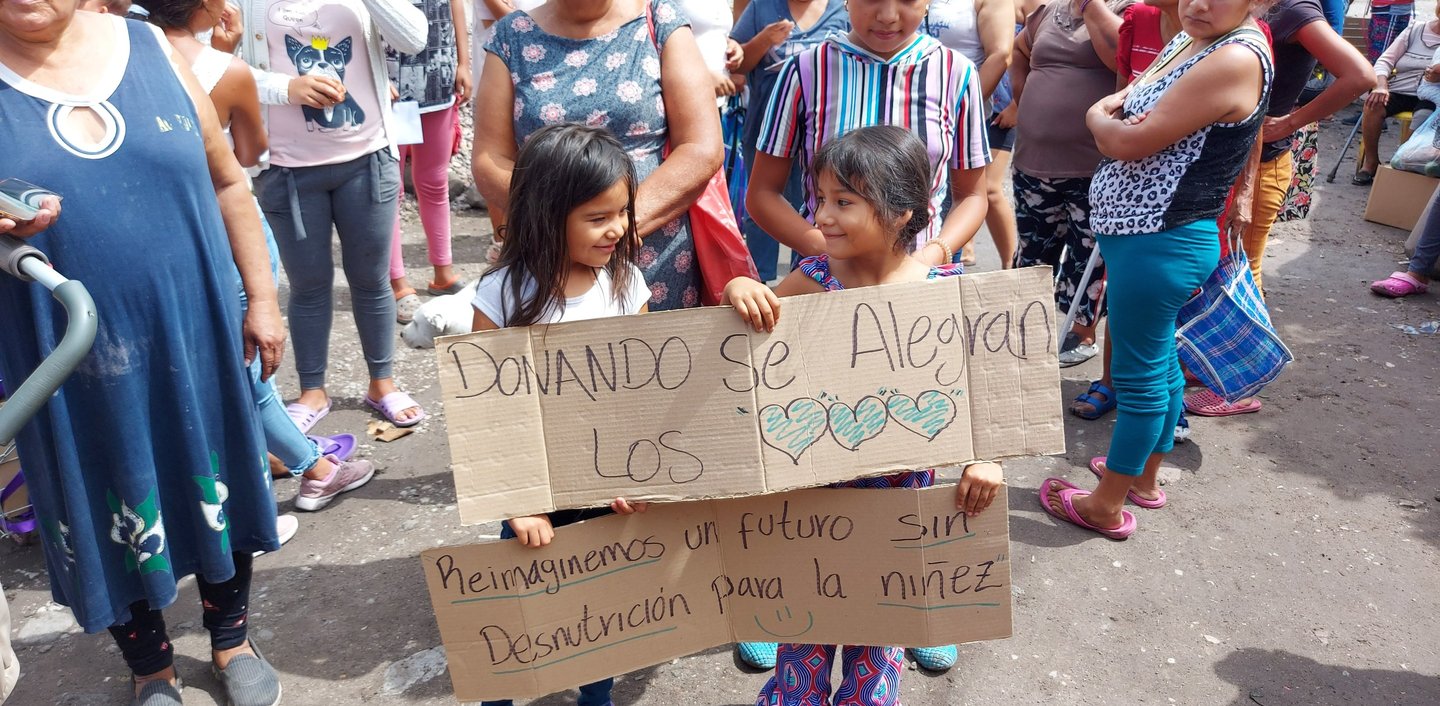 DONANDO Se Alegran
LOS
Reimaginemos un futuro sin
Desnutrición para la niñez"